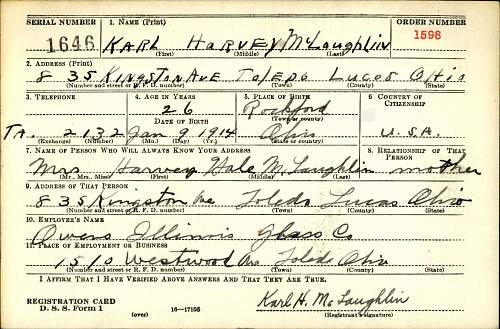 SERIAL NUMBER 1. NAME (Print) ORDER NUMBER
1646 KARL HARVEY McLaughlin 1598
(First) (Middle) (Last)
2. ADDRESS (Print)
835 KINGSTON AVE TOLEDO LUCAS OHIO
(Number and street or R. F. D. number) (Town) (County) (State)
3. TELEPHONE 4. AGE IN YEARS 5. PLACE OF BIRTH 6. COUNTRY OF CITIZENSHIP
26 Rockford
DATE OF BIRTH (Town or county)
TA. 2132 Jan 9 1914 Ohio U.S.A.
(Exchange) (Number) (Mo.) (Day) (Yr.) (State or country)
7. NAME OF PERSON WHO WILL ALWAYS KNOW YOUR ADDRESS 8. RELATIONSHIP OF THAT PERSON
Mrs. Harvey Gale McLaughlin mother
(Mr., Mrs., Miss) (First) (Middle) (Last)
9. ADDRESS OF THAT PERSON
835 Kingston Ave Toledo Lucas Ohio
(Number and street or R. F. D. number) (Town) (County) (State)
10. EMPLOYER'S NAME
Owens Illinois Glass Co
11. PLACE OF EMPLOYMENT OR BUSINESS
1510 Westwood Ave Toledo Ohio
(Number and street or R. F. D. number) (Town) (County) (State)
I AFFIRM THAT I HAVE VERIFIED ABOVE ANSWERS AND THAT THEY ARE TRUE.
REGISTRATION CARD
D. S. S. Form 1 (over) 16—17105
Karl H. McLaughlin
(Registrant's signature)